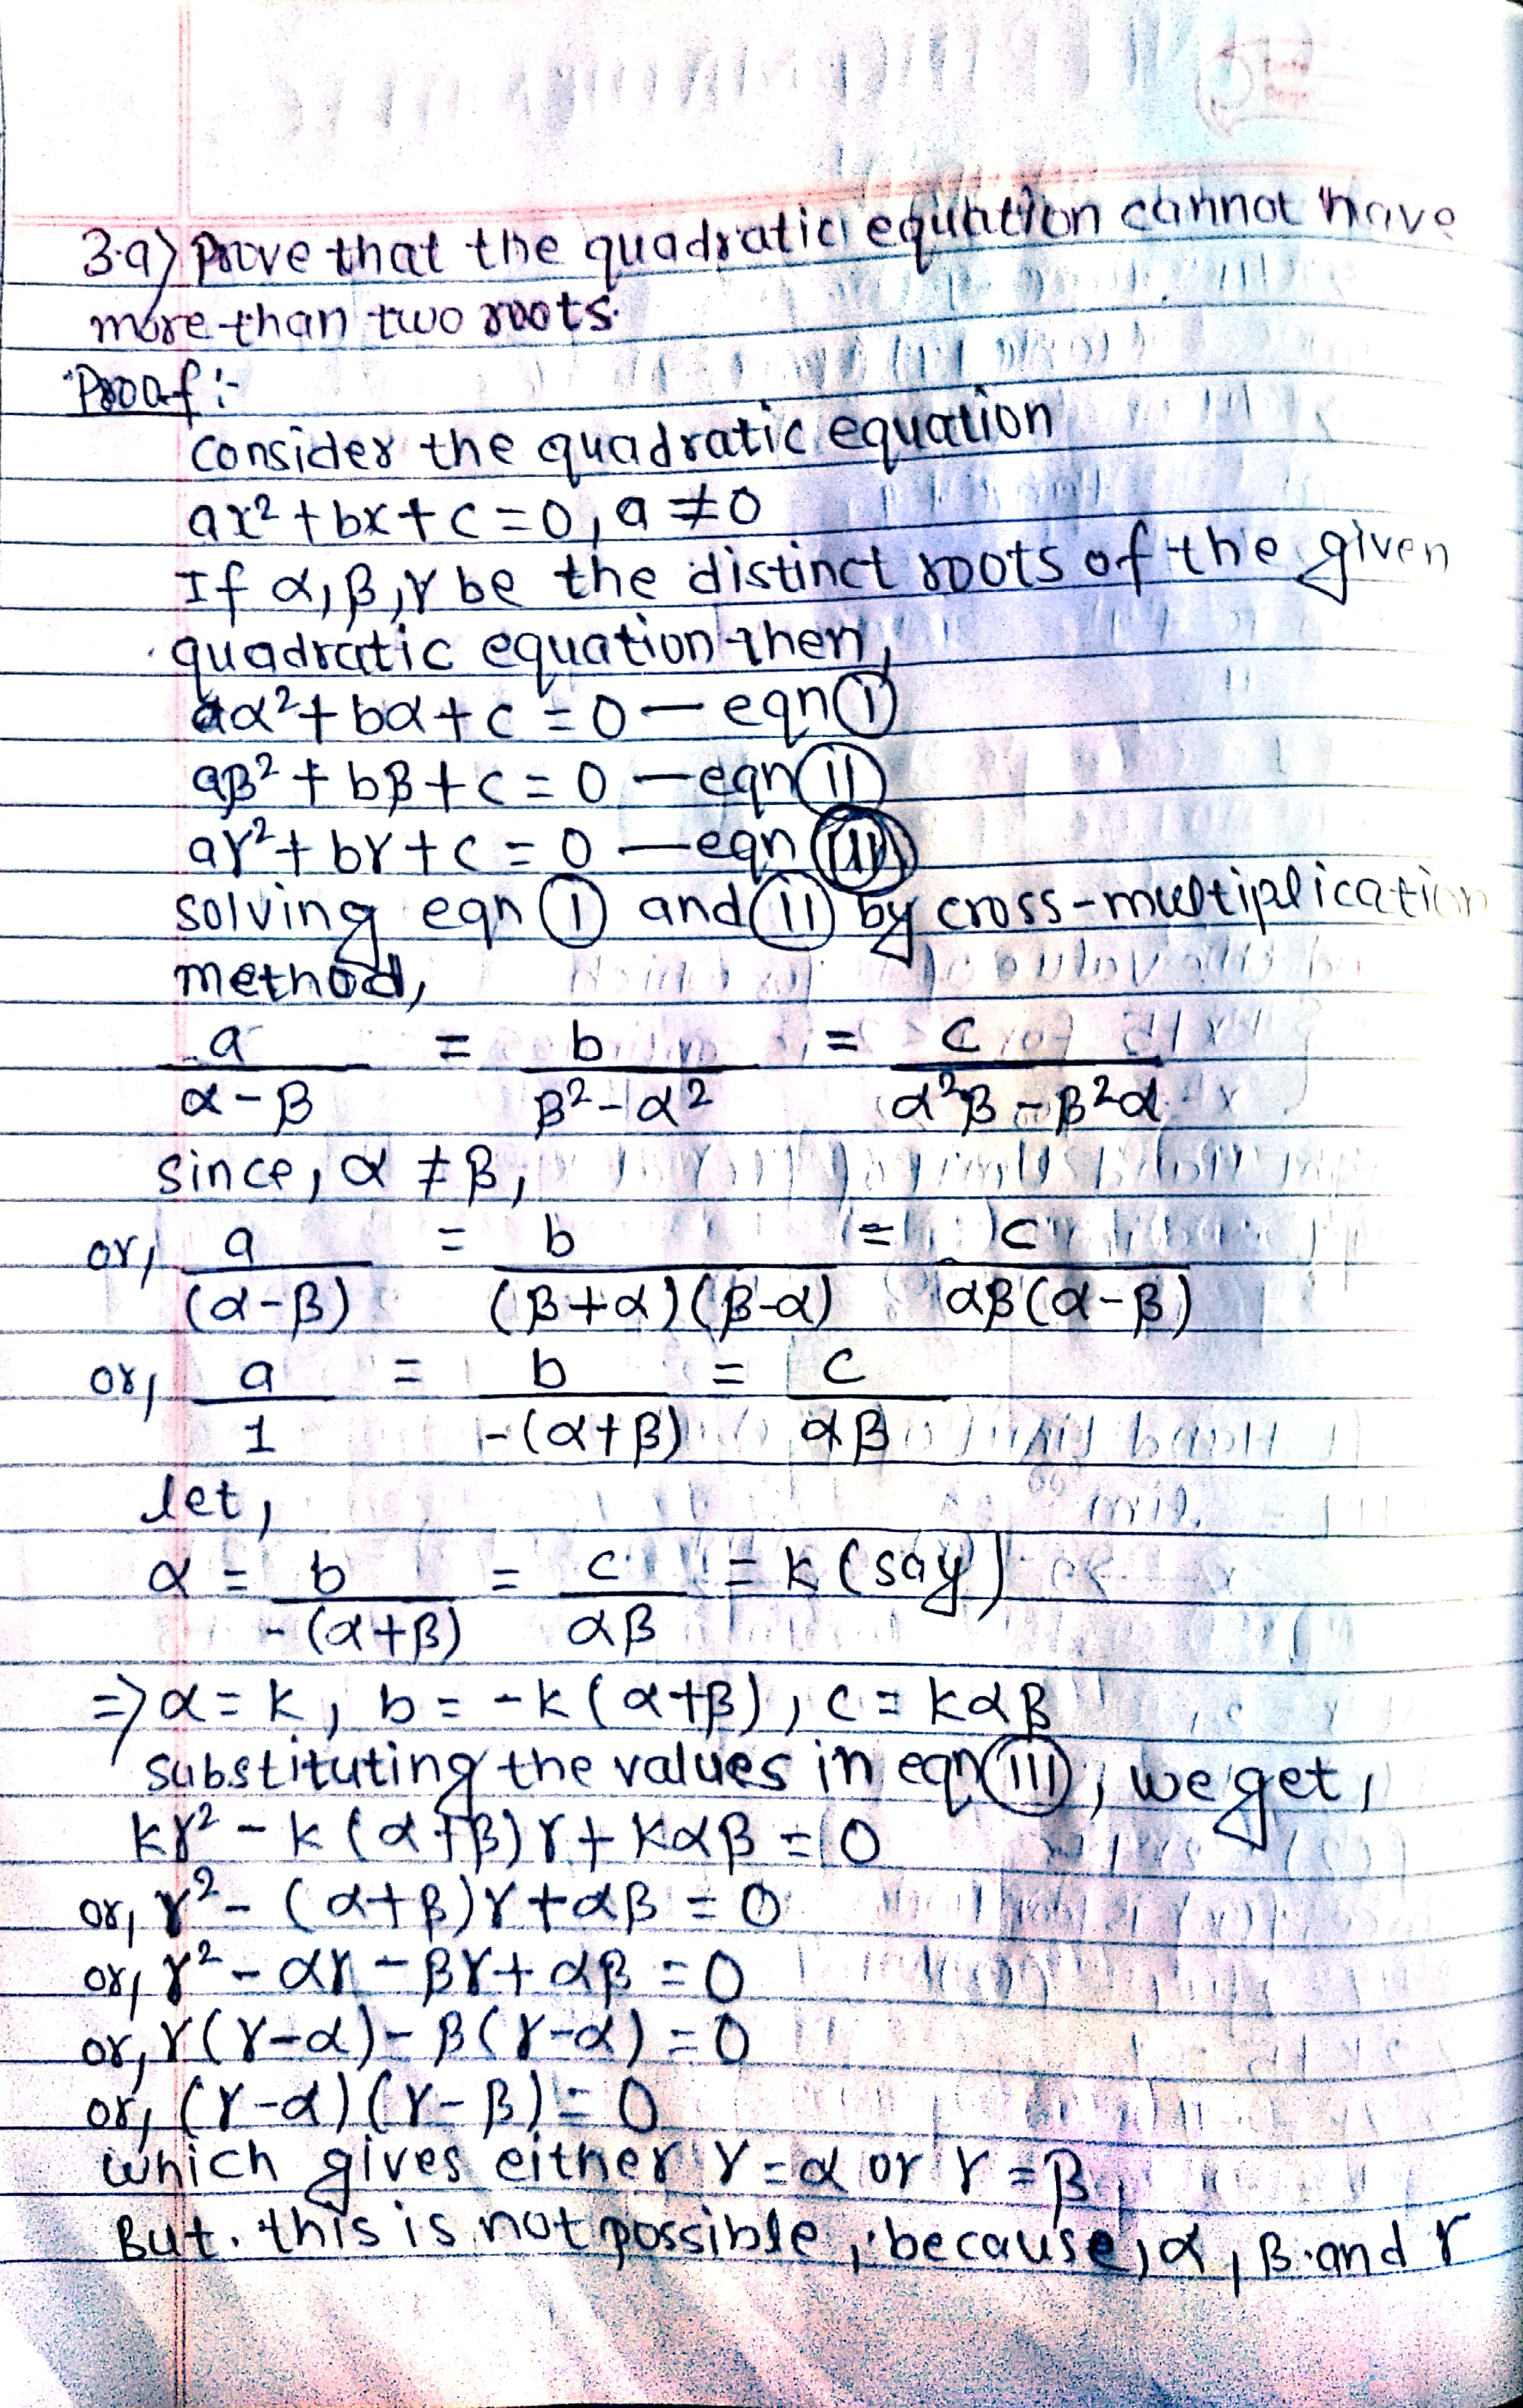 3.a) Prove that the quadratic equation cannot have
more than two roots.
Proof :-
Consider the quadratic equation
ax² + bx + c = 0, a ≠ 0
If α, β, γ be the distinct roots of the given
quadratic equation then,
aα² + bα + c = 0 — eqn (i)
aβ² + bβ + c = 0 — eqn (ii)
aγ² + bγ + c = 0 — eqn (iii)
solving eqn (i) and (ii) by cross-multiplication
method,
a/(α-β) = b/(β²-α²) = c/(α²β-β²α)
since, α ≠ β,
or, a/(α-β) = b/((β+α)(β-α)) = c/(αβ(α-β))
or, a/1 = b/-(α+β) = c/αβ
let,
α = b/-(α+β) = c/αβ = k (say)
=> α = k, b = -k(α+β), c = kαβ
Substituting the values in eqn (iii), we get,
kγ² - k(α+β)γ + kαβ = 0
or, γ² - (α+β)γ + αβ = 0
or, γ² - αγ - βγ + αβ = 0
or, γ(γ-α) - β(γ-α) = 0
or, (γ-α)(γ-β) = 0
which gives either γ = α or γ = β,
But. this is not possible, because, α, β and γ